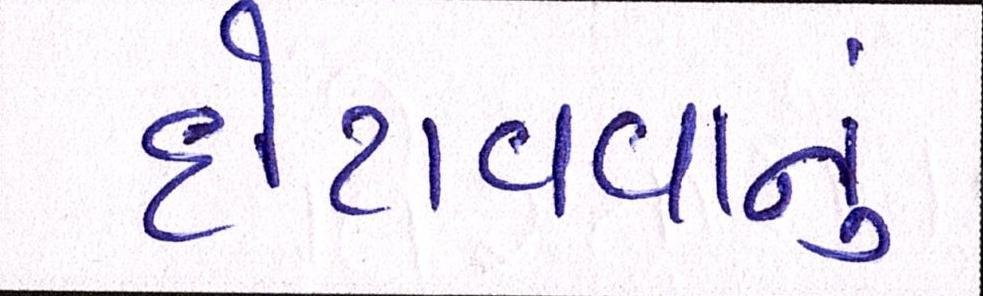 દોટાવવાનું